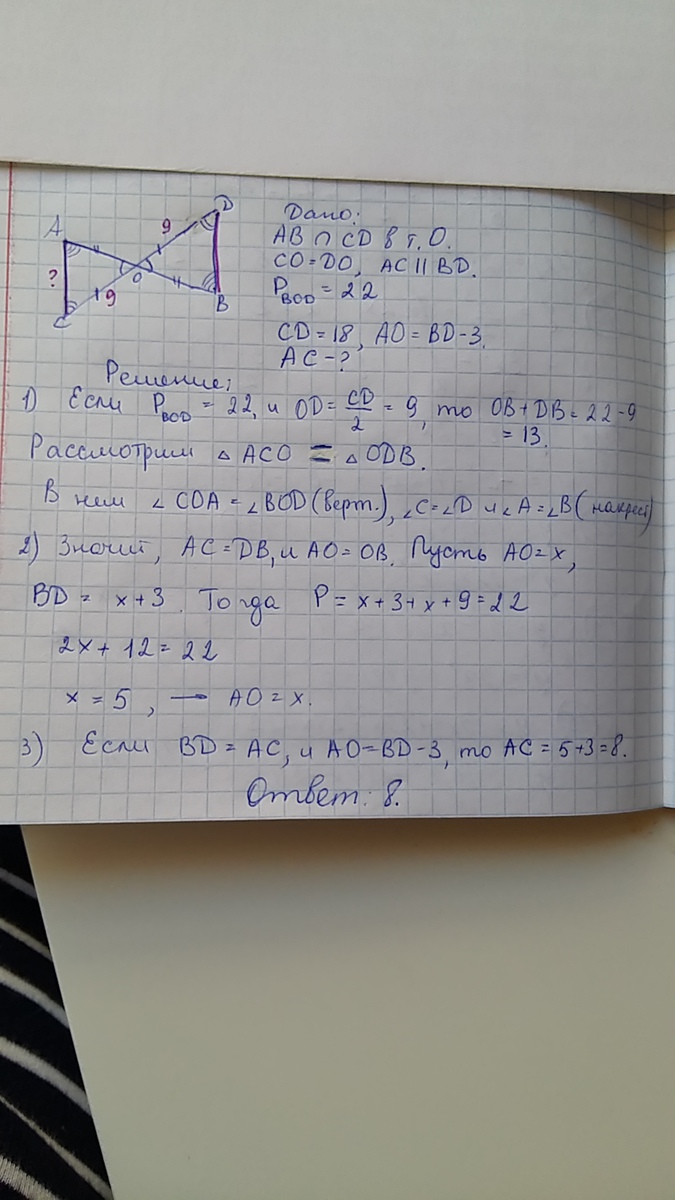 A
D
9
?
O
9
C
B
Дано:
AB ∩ CD в т. O.
CO=DO, AC || BD.
P_BOD = 22
CD=18, AO=BD-3.
AC-?
Решение:
1) Если P_BOD = 22, и OD = CD/2 = 9, то OB+DB=22-9
= 13.
Рассмотрим △ ACO = △ ODB.
В нем ∠COA=∠BOD (верт.), ∠C=∠D и ∠A=∠B (накрест)
2) Значит, AC=DB, и AO=OB. Пусть AO=x,
BD = x+3. Тогда P=x+3+x+9=22
2x+12=22
x=5, → AO=x.
3) Если BD=AC, и AO=BD-3, то AC=5+3=8.
Ответ: 8.